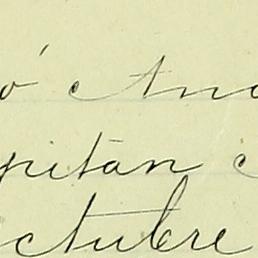 ó And
pitán c
ctubre